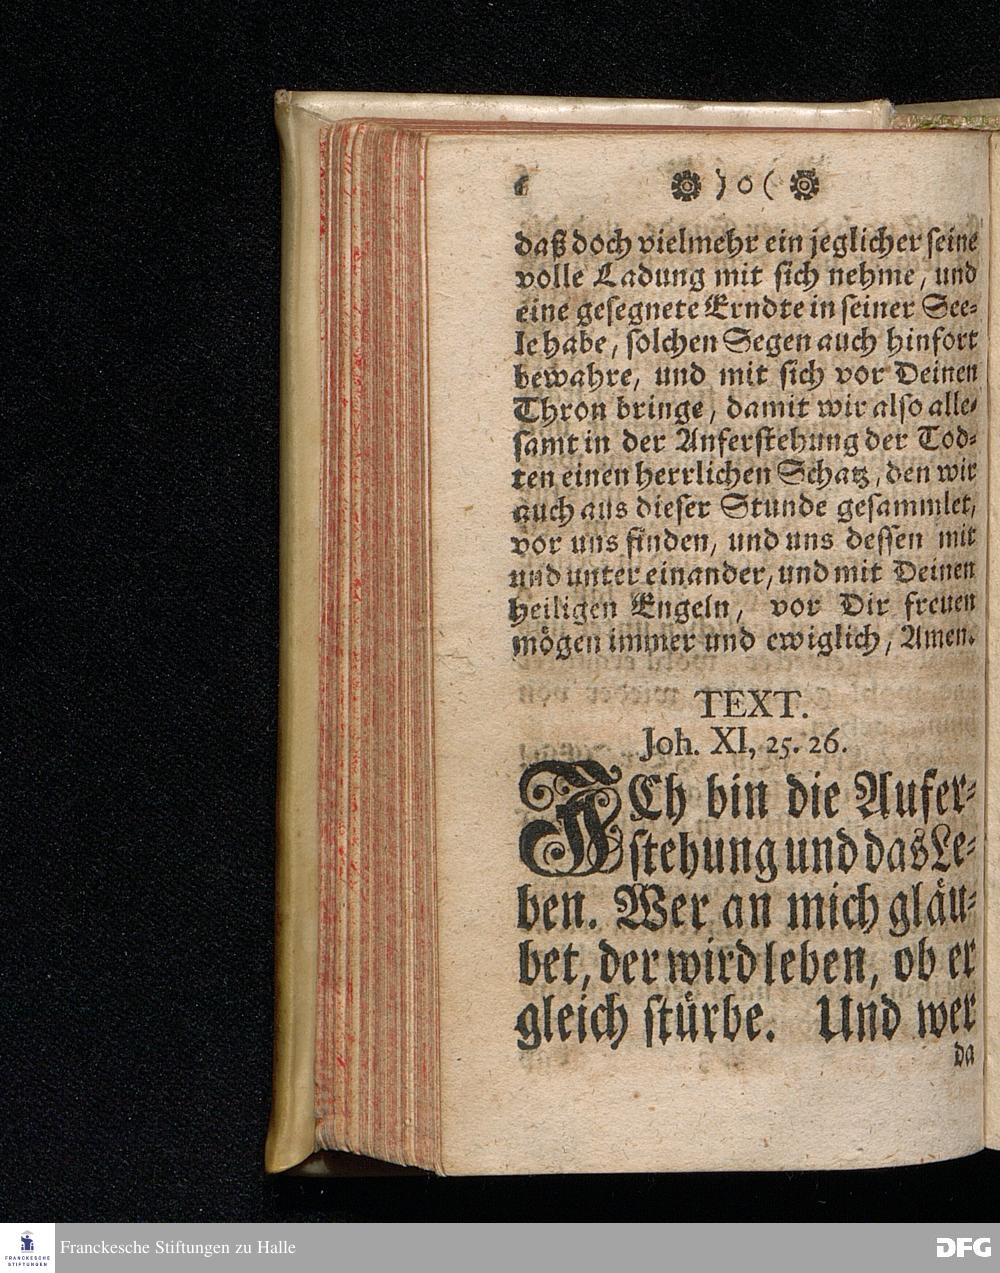 6 ❁ ) o ( ❁
daß doch vielmehr ein jeglicher seine
volle Ladung mit sich nehme, und
eine gesegnete Erndte in seiner See-
le habe, solchen Segen auch hinfort
bewahre, und mit sich vor Deinen
Thron bringe, damit wir also alle-
samt in der Auferstehung der Tod-
ten einen herrlichen Schatz, den wir
auch aus dieser Stunde gesammlet,
vor uns finden, und uns dessen mit
und unter einander, und mit Deinen
heiligen Engeln, vor Dir freuen
mögen immer und ewiglich, Amen.
TEXT.
Joh. XI, 25. 26.
ICh bin die Aufer-
stehung und das Le-
ben. Wer an mich gläu-
bet, der wird leben, ob er
gleich stürbe. Und wer
da
FRANCKESCHE
STIFTUNGEN
Franckesche Stiftungen zu Halle
DFG